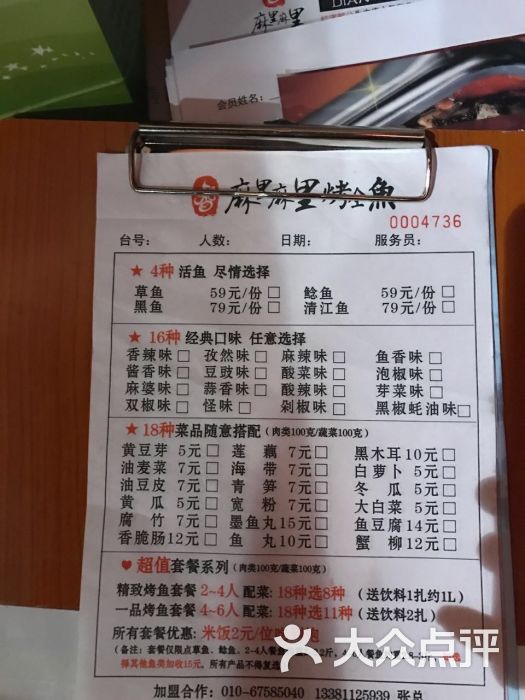 麻里麻里
会员姓名:
麻里麻里烤全魚
0004736
台号: 人数: 日期: 服务员:
★ 4种 活鱼 尽情选择
草鱼 59元/份□ 鲶鱼 59元/份□
黑鱼 79元/份□ 清江鱼 79元/份□
★ 16种 经典口味 任意选择
香辣味□ 孜然味□ 麻辣味□ 鱼香味□
酱香味□ 豆豉味□ 酸菜味□ 泡椒味□
麻婆味□ 蒜香味□ 酸辣味□ 芽菜味□
双椒味□ 怪味□ 剁椒味□ 黑椒蚝油味□
★ 18种菜品随意搭配(肉类100克/蔬菜100克)
黄豆芽 5元□ 莲藕 7元□ 黑木耳10元□
油麦菜 7元□ 海带 7元□ 白萝卜 5元□
油豆皮 7元□ 青笋 7元□ 冬瓜 5元□
黄瓜 5元□ 宽粉 7元□ 大白菜 5元□
腐竹 7元□ 墨鱼丸15元□ 鱼豆腐14元□
香脆肠12元□ 鱼丸10元□ 蟹柳12元□
♥ 超值套餐系列(肉类100克/蔬菜100克)
精致烤鱼套餐 2~4人 配菜: 18种选8种 (送饮料1扎约1L)
一品烤鱼套餐 4~6人 配菜: 18种选11种 (送饮料2扎)
所有套餐优惠: 米饭2元/位
(备注: 套餐仅限点草鱼、鲶鱼, 2-4人餐
得其他鱼类加收15元。所有产品不得复
加盟合作: 010-67585040 13381125939 张总
大众点评